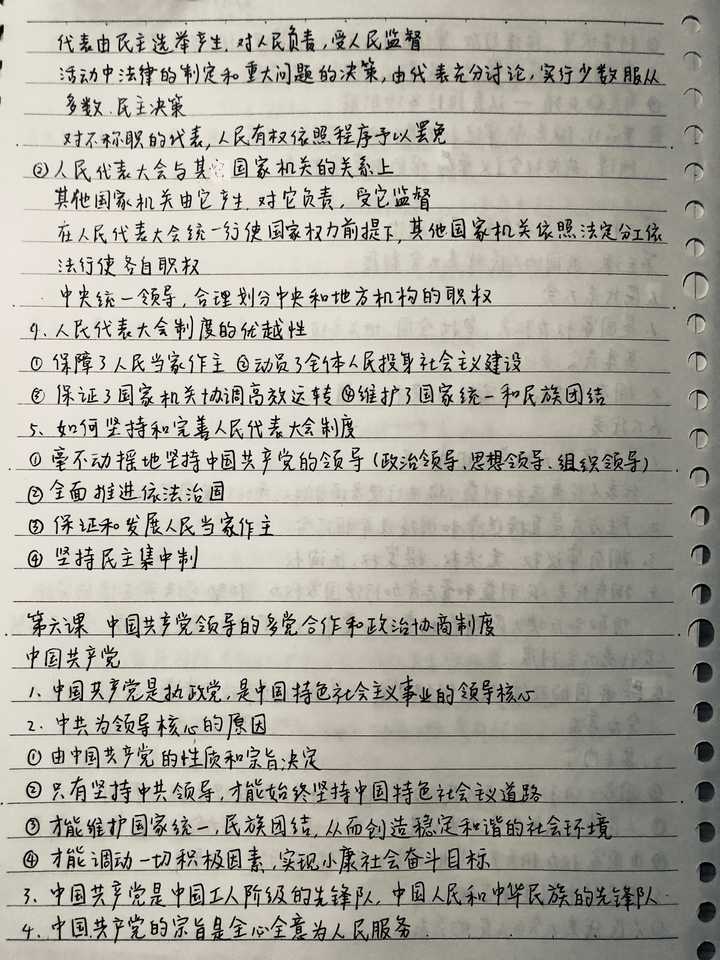 代表由民主选举产生,对人民负责,受人民监督
活动中法律的制定和重大问题的决策,由代表充分讨论,实行少数服从
多数.民主决策
对不称职的代表,人民有权依照程序予以罢免
②人民代表大会与其它国家机关的关系上
其他国家机关由它产生,对它负责,受它监督
在人民代表大会统一行使国家权力前提下,其他国家机关依照法定分工依
法行使各自职权
中央统一领导,合理划分中央和地方机构的职权
4、人民代表大会制度的优越性
① 保障了人民当家作主 ②动员了全体人民投身社会主义建设
③ 保证了国家机关协调高效运转 ④维护了国家统一和民族团结
5、如何坚持和完善人民代表大会制度
① 毫不动摇地坚持中国共产党的领导(政治领导、思想领导、组织领导)
②全面推进依法治国
③ 保证和发展人民当家作主
④ 坚持民主集中制
第六课 中国共产党领导的多党合作和政治协商制度
中国共产党
1、中国共产党是执政党,是中国特色社会主义事业的领导核心
2.中共为领导核心的原因
①由中国共产党的性质和宗旨决定
②只有坚持中共领导,才能始终坚持中国特色社会主义道路
③才能维护国家统一,民族团结,从而创造稳定和谐的社会环境
④才能调动一切积极因素,实现小康社会奋斗目标
3、中国共产党是中国工人阶级的先锋队,中国人民和中华民族的先锋队
4.中国共产党的宗旨是全心全意为人民服务.